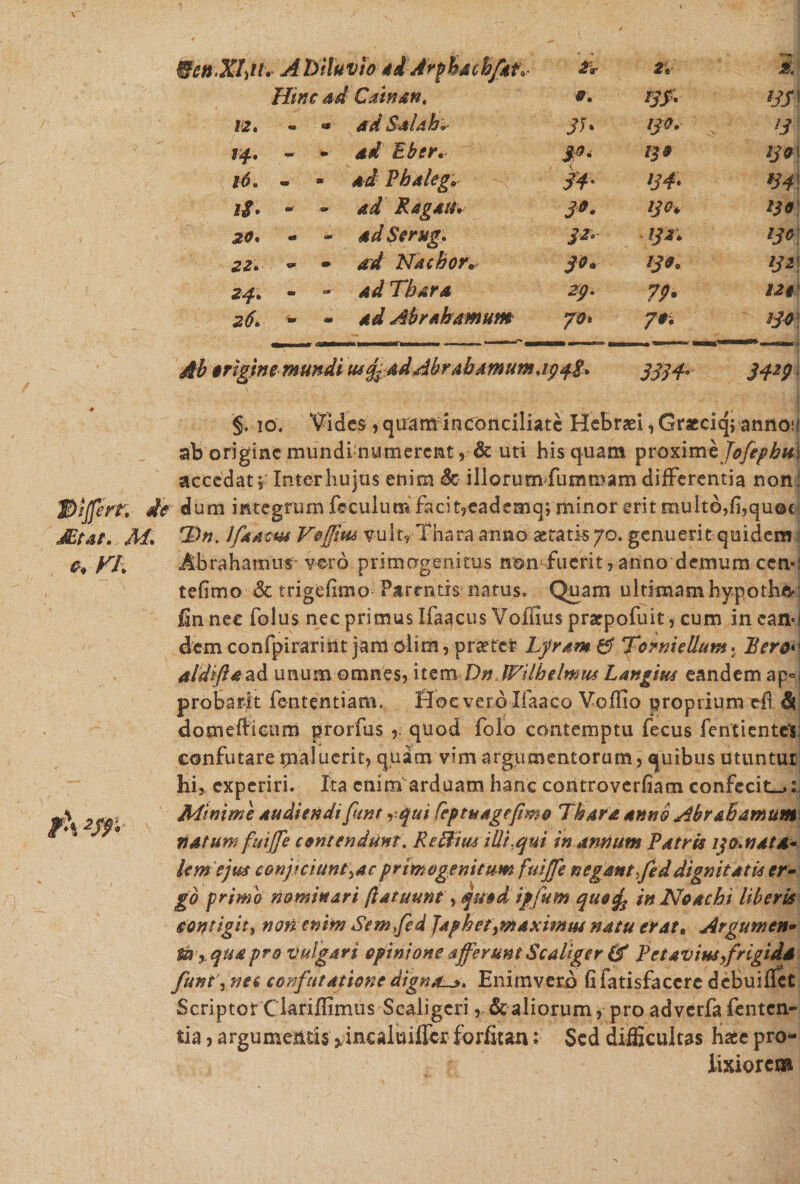 Gen.XI,11. A Diluvio ad Arphachſat. 2. 2. 2.
Hinc ad Cainan. 0. 135. 135
12. - - ad Salah. 35. 130. 13
14. - - ad Eber. 30. 130 130
16. - - ad Phaleg. 34. 134. 134
18. - - ad Ragau. 30. 130. 130
20. - - ad Serug. 32. 132. 130
22. - - ad Nachor. 30. 130. 132
24. - - ad Thara 29. 79. 120
26. - - ad Abrahamum 70. 70. 130
Ab origine mundi usq; ad Abrahamum.1948. 3334. 3429.
§. 10. Vides, quam inconciliatè Hebræi, Græciq; anno
ab origine mundi numerent, & uti his quam proximè Joſephu
accedat; Inter hujus enim & illorum ſummam differentia non
Differt. de dum integrum ſeculum facit, eademq; minor erit multò, ſi, quoc
Ætat. M. Dn. Iſaacus Voſſius vult, Thara anno ætatis 70. genuerit quidem
c. VI. Abrahamus verò primogenitus non fuerit, anno demum cen-
teſimo & trigeſimo Parentis natus. Quam ultimam hypothe-
ſin nec ſolus nec primus Iſaacus Voſſius præpoſuit, cum in ean-
dem conſpirarint jam olim, præter Lyram & Torniellum. Bero-
aldiſtæ ad unum omnes, item Dn. Wilhelmus Langius eandem ap-
probarit ſententiam. Hoc verò Iſaaco Voſſio proprium eſt &
domeſticum prorſus, quod ſolo contemptu ſecus ſentientes
confutare maluerit, quàm vim argumentorum, quibus utuntur
hi, experiri. Ita enim arduam hanc controverſiam confecit:
p. 259. Minimè audiendi ſunt, qui ſeptuageſimo Thara anno Abrahamum
natum fuiſſe contendunt. Rectius illi, qui in annum Patris 130. nata-
lem ejus conjiciunt, ac primogenitum fuiſſe negant, ſed dignitatis er-
gò primò nominari ſtatuunt, quod ipſum quoq; in Noachi liberis
contigit, non enim Sem, ſed Japhet, maximus natu erat. Argumen-
ta, qua pro vulgari opinione afferunt Scaliger & Petavius, frigida
ſunt, nec confutatione digna. Enimverò ſi ſatisfacere debuiſſet
Scriptor Clariſſimus Scaligeri, & aliorum, pro adverſa ſenten-
tia, argumentis, incaluiſſet forſitan: Sed difficultas hæc pro-
lixiorem